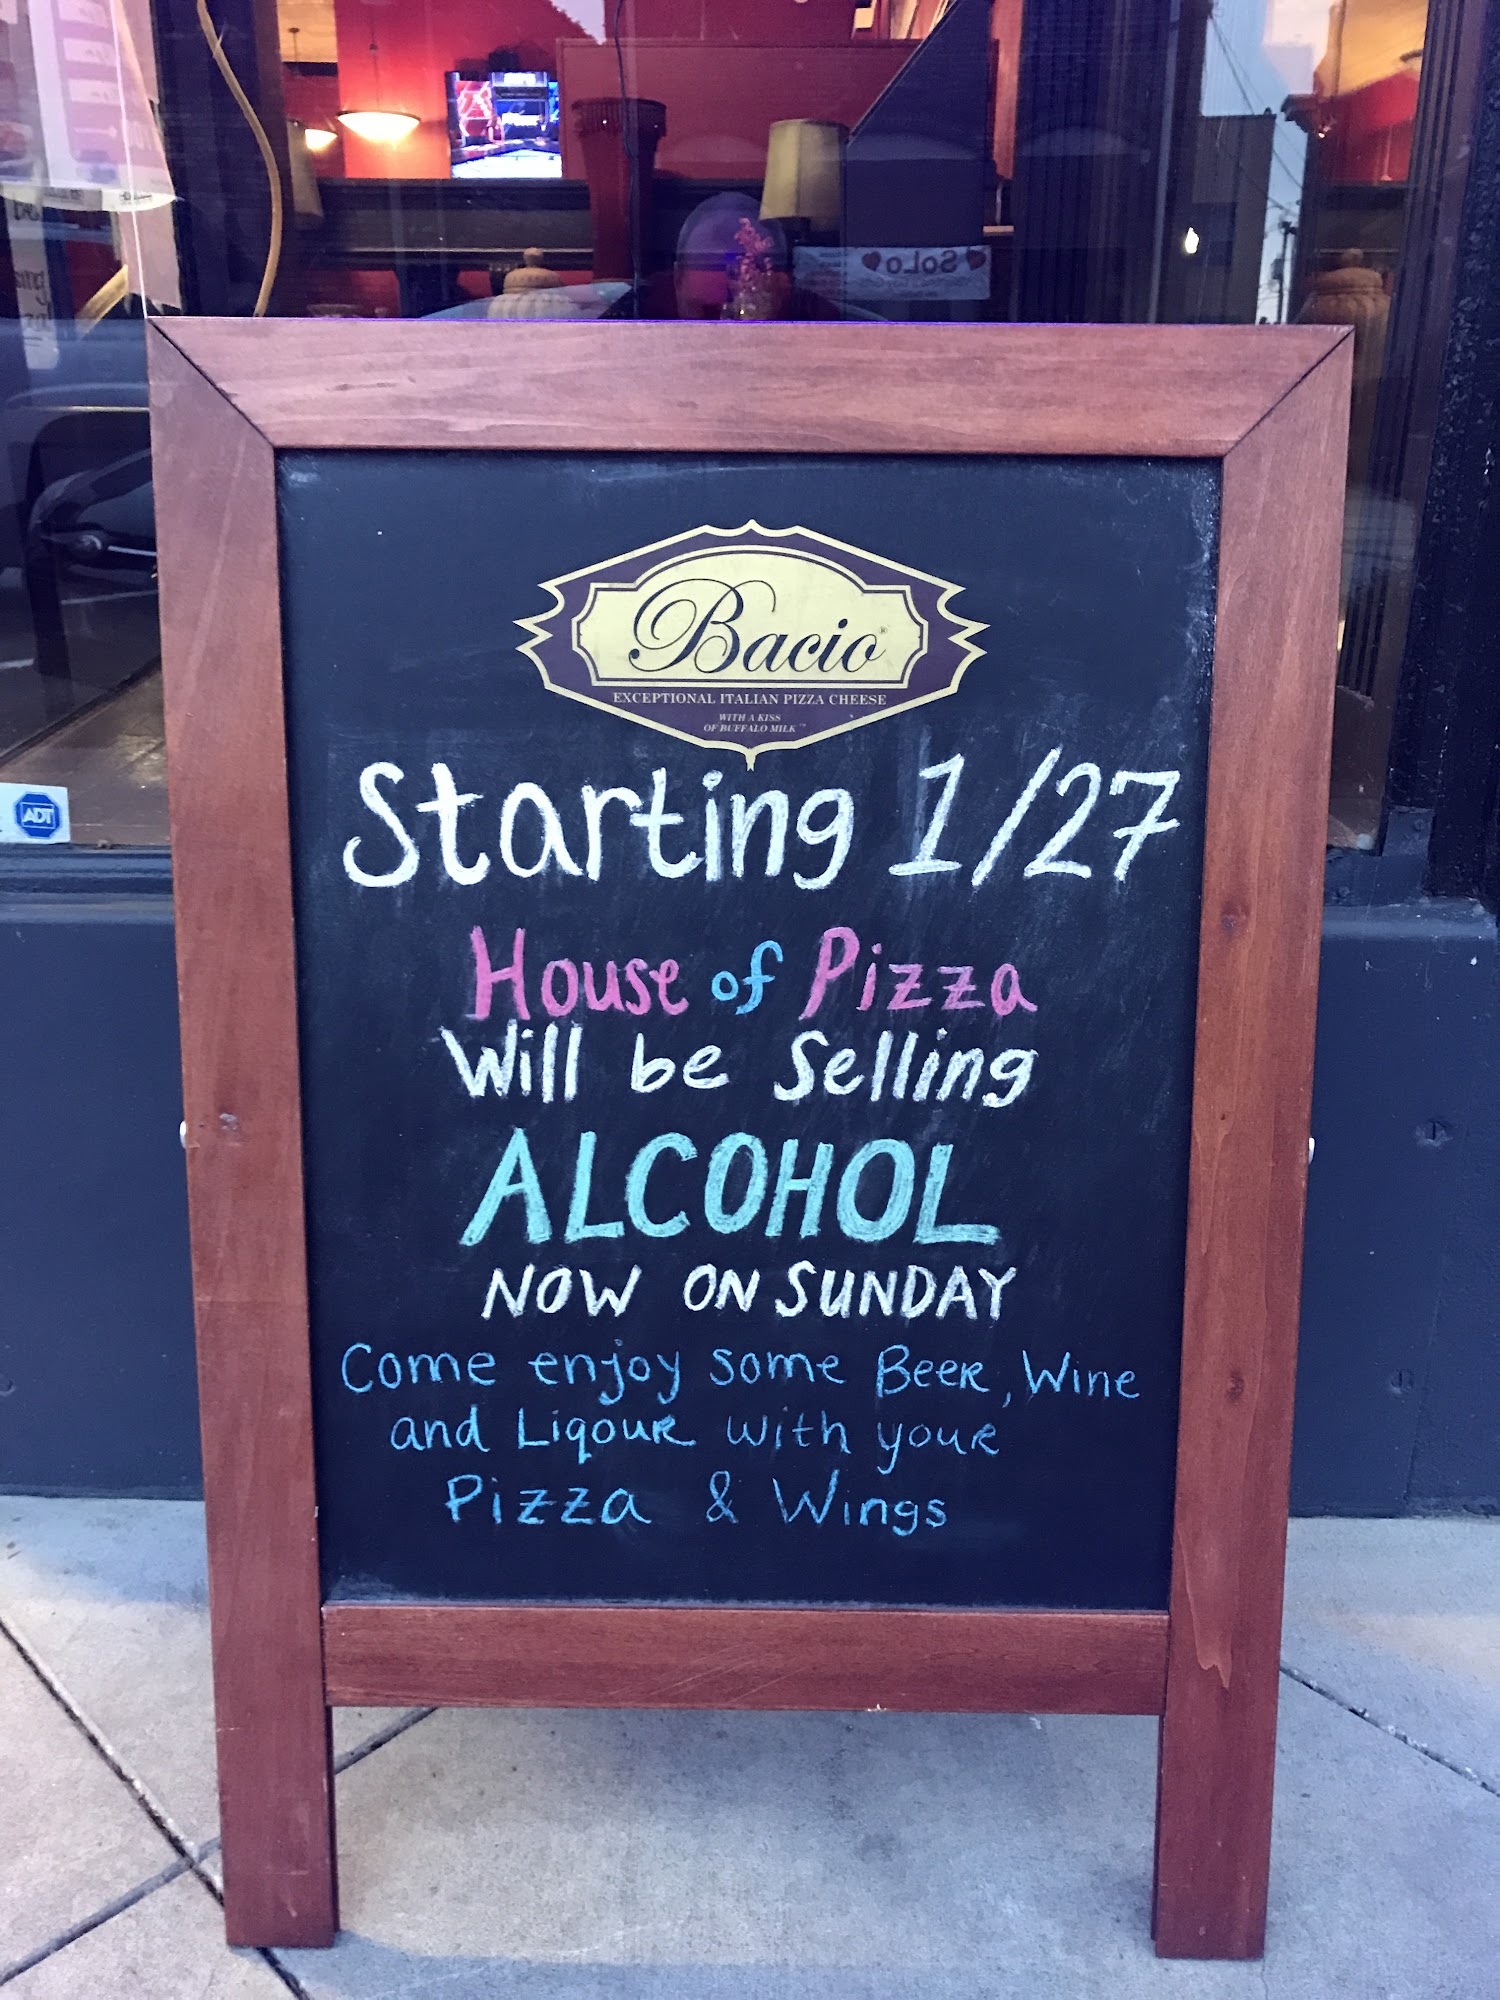 SoLo
ADT
Bacio
EXCEPTIONAL ITALIAN PIZZA CHEESE
WITH A KISS
OF BUFFALO MILK™
Starting 1/27
House of Pizza
Will be Selling
ALCOHOL
NOW ON SUNDAY
Come enjoy some BeeR, Wine
and LiqouR with youR
Pizza & Wings